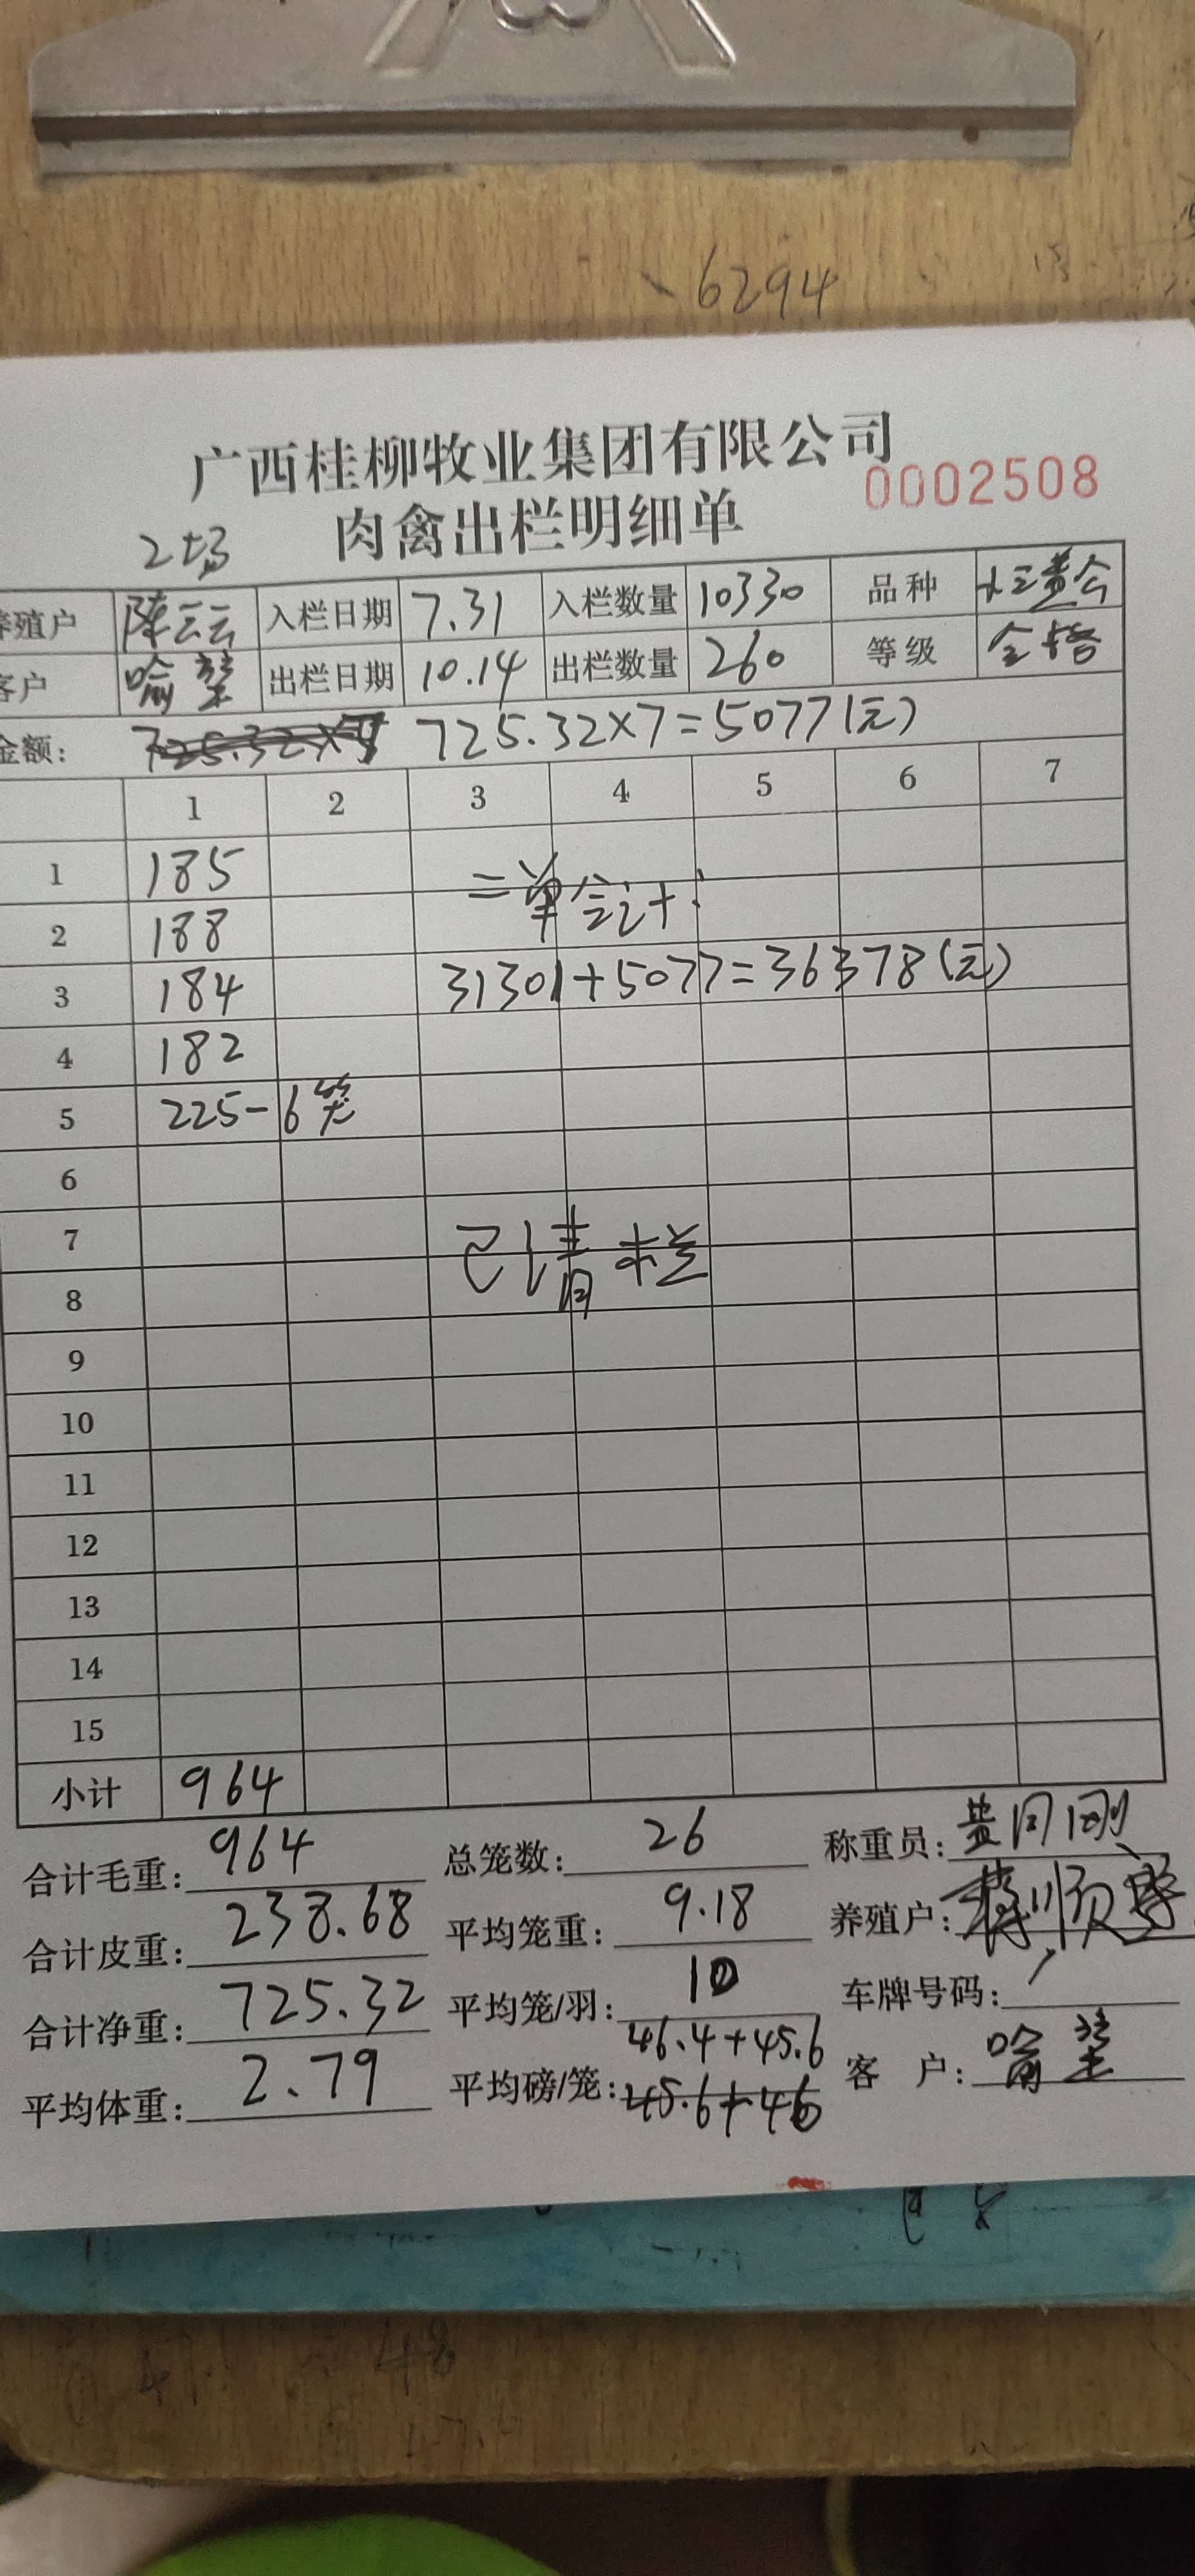 6294
广西桂柳牧业集团有限公司
0002508
肉禽出栏明细单
2场
养殖户 陈云云 入栏日期 7.31 入栏数量 10330 品种
客户 喻 出栏日期 10.14 出栏数量 260 等级
金额: 725.32×7=5077(元)
1 2 3 4 5 6 7
1 185
二单合计:
2 188
3 184 31301+5077=36378(元)
4 182
5 225-6笼
6
7 已清栏
8
9
10
11
12
13
14
15
小计 964
合计毛重: 964 总笼数: 26 称重员:
合计皮重: 238.68 平均笼重: 9.18 养殖户:
合计净重: 725.32 平均笼/羽: 10 车牌号码: /
46.4+45.6
平均体重: 2.79 平均磅/笼: 45.6+46 客 户: 喻
48